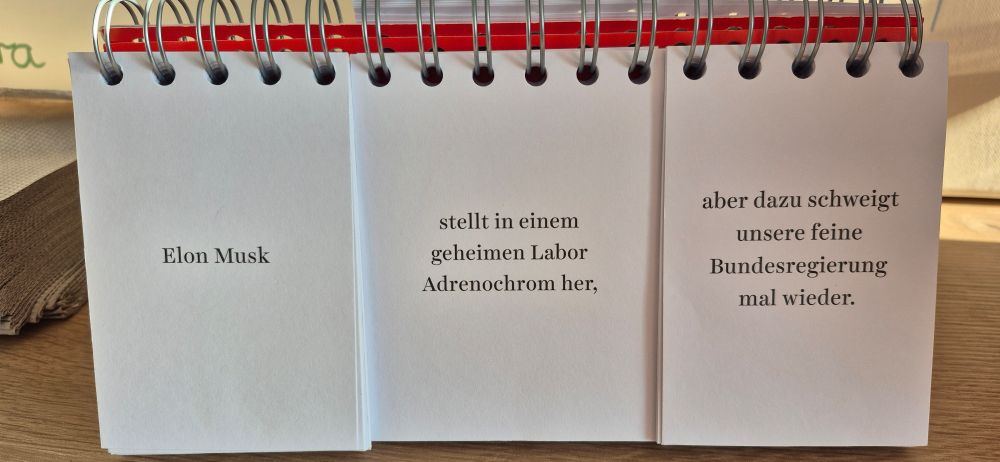 ra
Elon Musk
stellt in einem
geheimen Labor
Adrenochrom her,
aber dazu schweigt
unsere feine
Bundesregierung
mal wieder.